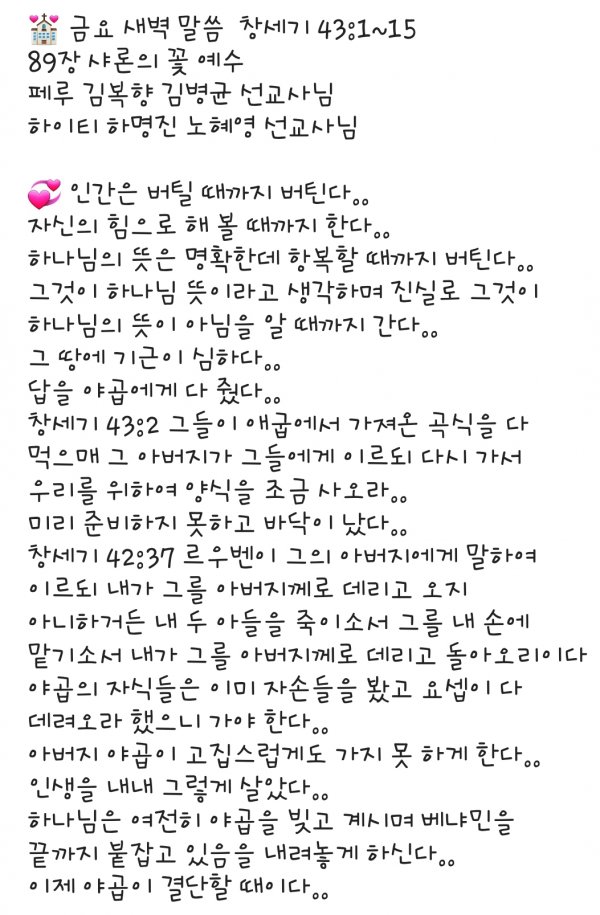 💒 금요 새벽 말씀  창세기 43:1~15
89장 샤론의 꽃 예수
페루 김복향 김병균 선교사님
하이티 하명진 노혜영 선교사님

💞 인간은 버틸 때까지 버틴다..
자신의 힘으로 해 볼 때까지 한다..
하나님의 뜻은 명확한데 항복할 때까지 버틴다..
그것이 하나님 뜻이라고 생각하며 진실로 그것이
하나님의 뜻이 아님을 알 때까지 간다..
그 땅에 기근이 심하다..
답을 야곱에게 다 줬다..
창세기 43:2 그들이 애굽에서 가져온 곡식을 다
먹으매 그 아버지가 그들에게 이르되 다시 가서
우리를 위하여 양식을 조금 사오라..
미리 준비하지 못하고 바닥이 났다..
창세기 42:37 르우벤이 그의 아버지에게 말하여
이르되 내가 그를 아버지께로 데리고 오지
아니하거든 내 두 아들을 죽이소서 그를 내 손에
맡기소서 내가 그를 아버지께로 데리고 돌아오리이다
야곱의 자식들은 이미 자손들을 봤고 요셉이 다
데려오라 했으니 가야 한다..
아버지 야곱이 고집스럽게도 가지 못 하게 한다..
인생을 내내 그렇게 살았다..
하나님은 여전히 야곱을 빚고 계시며 베냐민을
끝까지 붙잡고 있음을 내려놓게 하신다..
이제 야곱이 결단할 때이다..